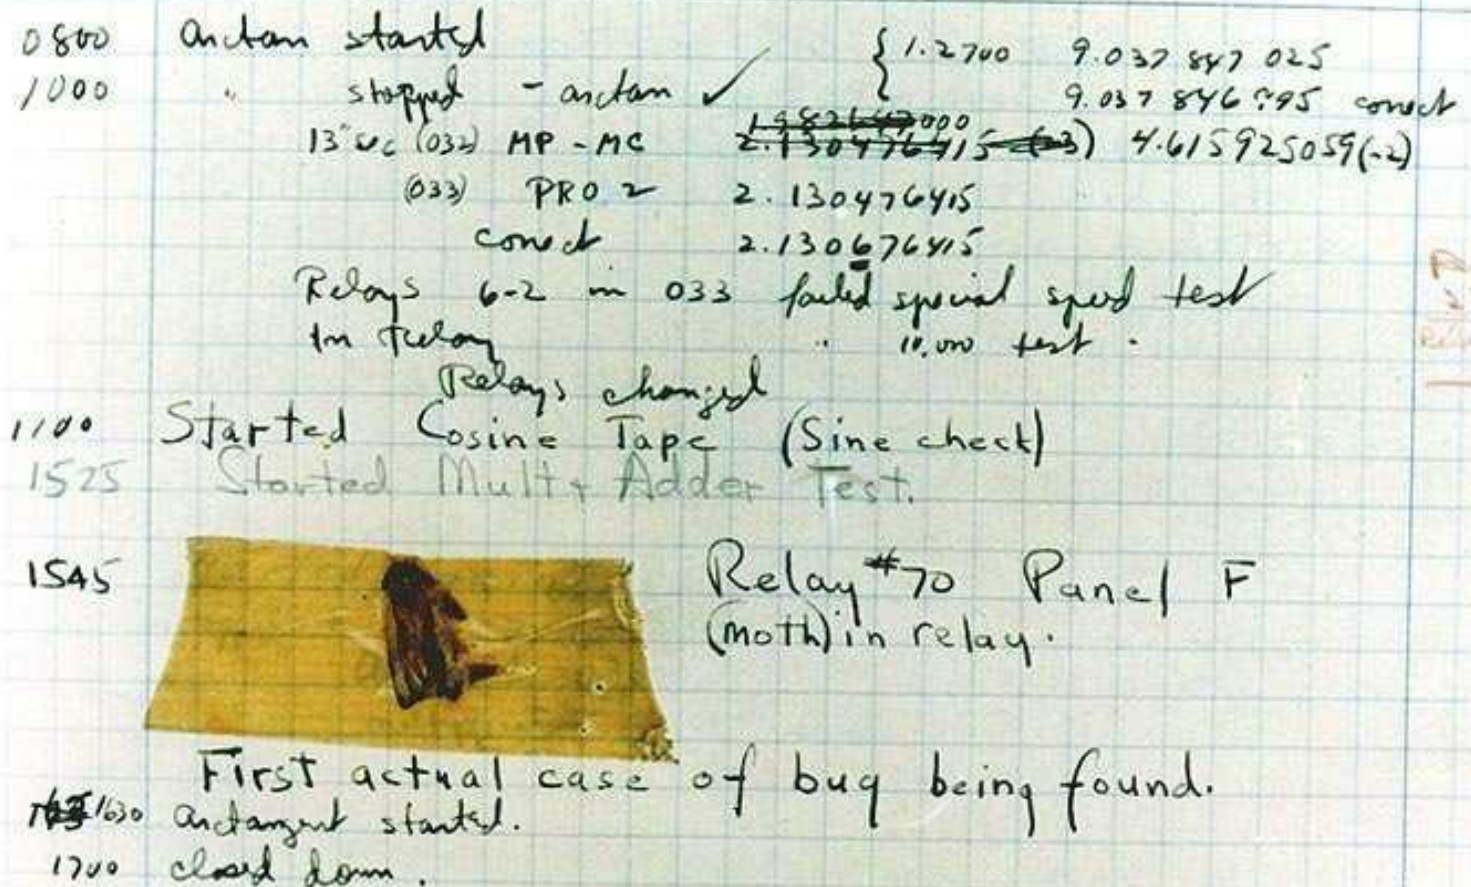 0800 arctan started { 1.2700 9.037 847 025
1000 " stopped - arctan ✓ 9.037 846 995 correct
13" sec (032) MP - MC 2.130476415 (-3) 4.615925059(-2)
(033) PRO 2 2.130476415
correct 2.130676415
Relays 6-2 in 033 failed special speed test
In relay " 10.000 test .
Relays changed
1100 Started Cosine Tape (Sine check)
1525 Started Mult + Adder Test.
1545 Relay #70 Panel F
(moth) in relay.
First actual case of bug being found.
1630 arctangent started.
1700 closed down .